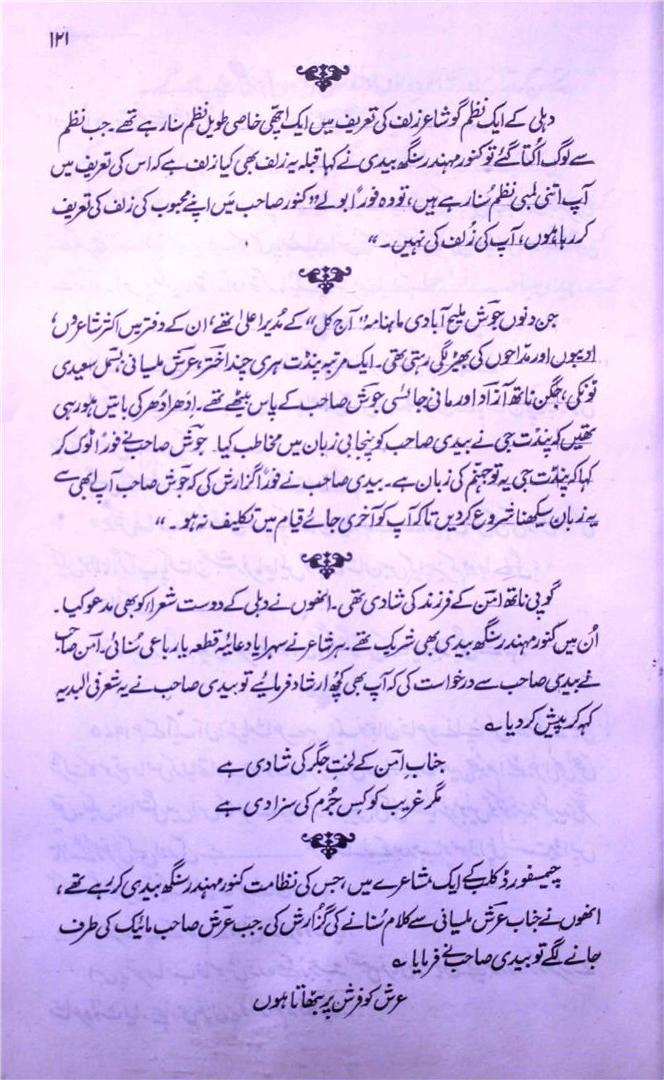 ۱۲۱
دہلی کے ایک نظم گو شاعر زلف کی تعریف میں ایک اچھی خاصی طویل نظم سنا رہے تھے۔ جب نظم
سے لوگ اکتا گئے تو کنور مہندر سنگھ بیدی نے کہا قبلہ یہ زلف بھی کیا زلف ہے کہ اس کی تعریف میں
آپ اتنی لمبی نظم سُنا رہے ہیں، تو وہ فوراً بولے "کنور صاحب میَں اپنے محبوب کی زلف کی تعریف
کر رہا ہوُں، آپ کی زُلف کی نہیں۔"
جن دنوں جوشؔ ملیح آبادی ماہنامہ "آج کل" کے مُدیرِ اعلیٰ تھے، اُن کے دفتر میں اکثر شاعروں،
ادیبوں اور مدّاحوں کی بھیڑ لگی رہتی تھی۔ ایک مرتبہ پنڈت ہری چند اخترؔ، عرشؔ ملسیانی بسملؔ سعیدی
ٹونکی، جگن ناتھ آزادؔ اور مانی جائسی جوشؔ صاحب کے پاس بیٹھے تھے۔ اِدھر اُدھر کی باتیں ہو رہی
تھیں کہ پنڈت جی نے بیدی صاحب کو پنجابی زبان میں مخاطب کیا۔ جوشؔ صاحب نے فوراً ٹوک کر
کہا کہ پنڈت جی یہ تو جہنم کی زبان ہے۔ بیدی صاحب نے فوراً گزارش کی کہ جوشؔ صاحب آپ ابھی سے
یہ زبان سیکھنا شروع کر دیں تاکہ آپ کو آخری جائے قیام میں تکلیف نہ ہو۔"
گوپی ناتھ امنؔ کے فرزند کی شادی تھی۔ انھوں نے دہلی کے دوست شعراء کو بھی مدعو کیا۔
اُن میں کنور مہندر سنگھ بیدی بھی شریک تھے۔ ہر شاعر نے سہرا یا دعائیہ قطعہ یا رباعی سُنائی۔ امن صاحب
نے بیدی صاحب سے درخواست کی کہ آپ بھی کچھ ارشاد فرمائیے تو بیدی صاحب نے یہ شعر فی البدیہہ
کہہ کر پیش کر دیا ؎
جناب امنؔ کے لختِ جگر کی شادی ہے
مگر غریب کو کس جُرم کی سزا دی ہے
چیمسفورڈ کلب کے ایک مشاعرے میں، جس کی نظامت کنور مہندر سنگھ بیدی کر رہے تھے،
انھوں نے جناب عرش ملسیانی سے کلام سُنانے کی گزارش کی۔ جب عرشؔ صاحب مائیک کی طرف
جانے لگے تو بیدی صاحب نے فرمایا ؎
عرش کو فرش پر بٹھاتا ہوں